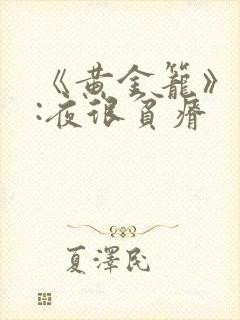 《黄金笼》
:夜很贫瘠
夏澤民